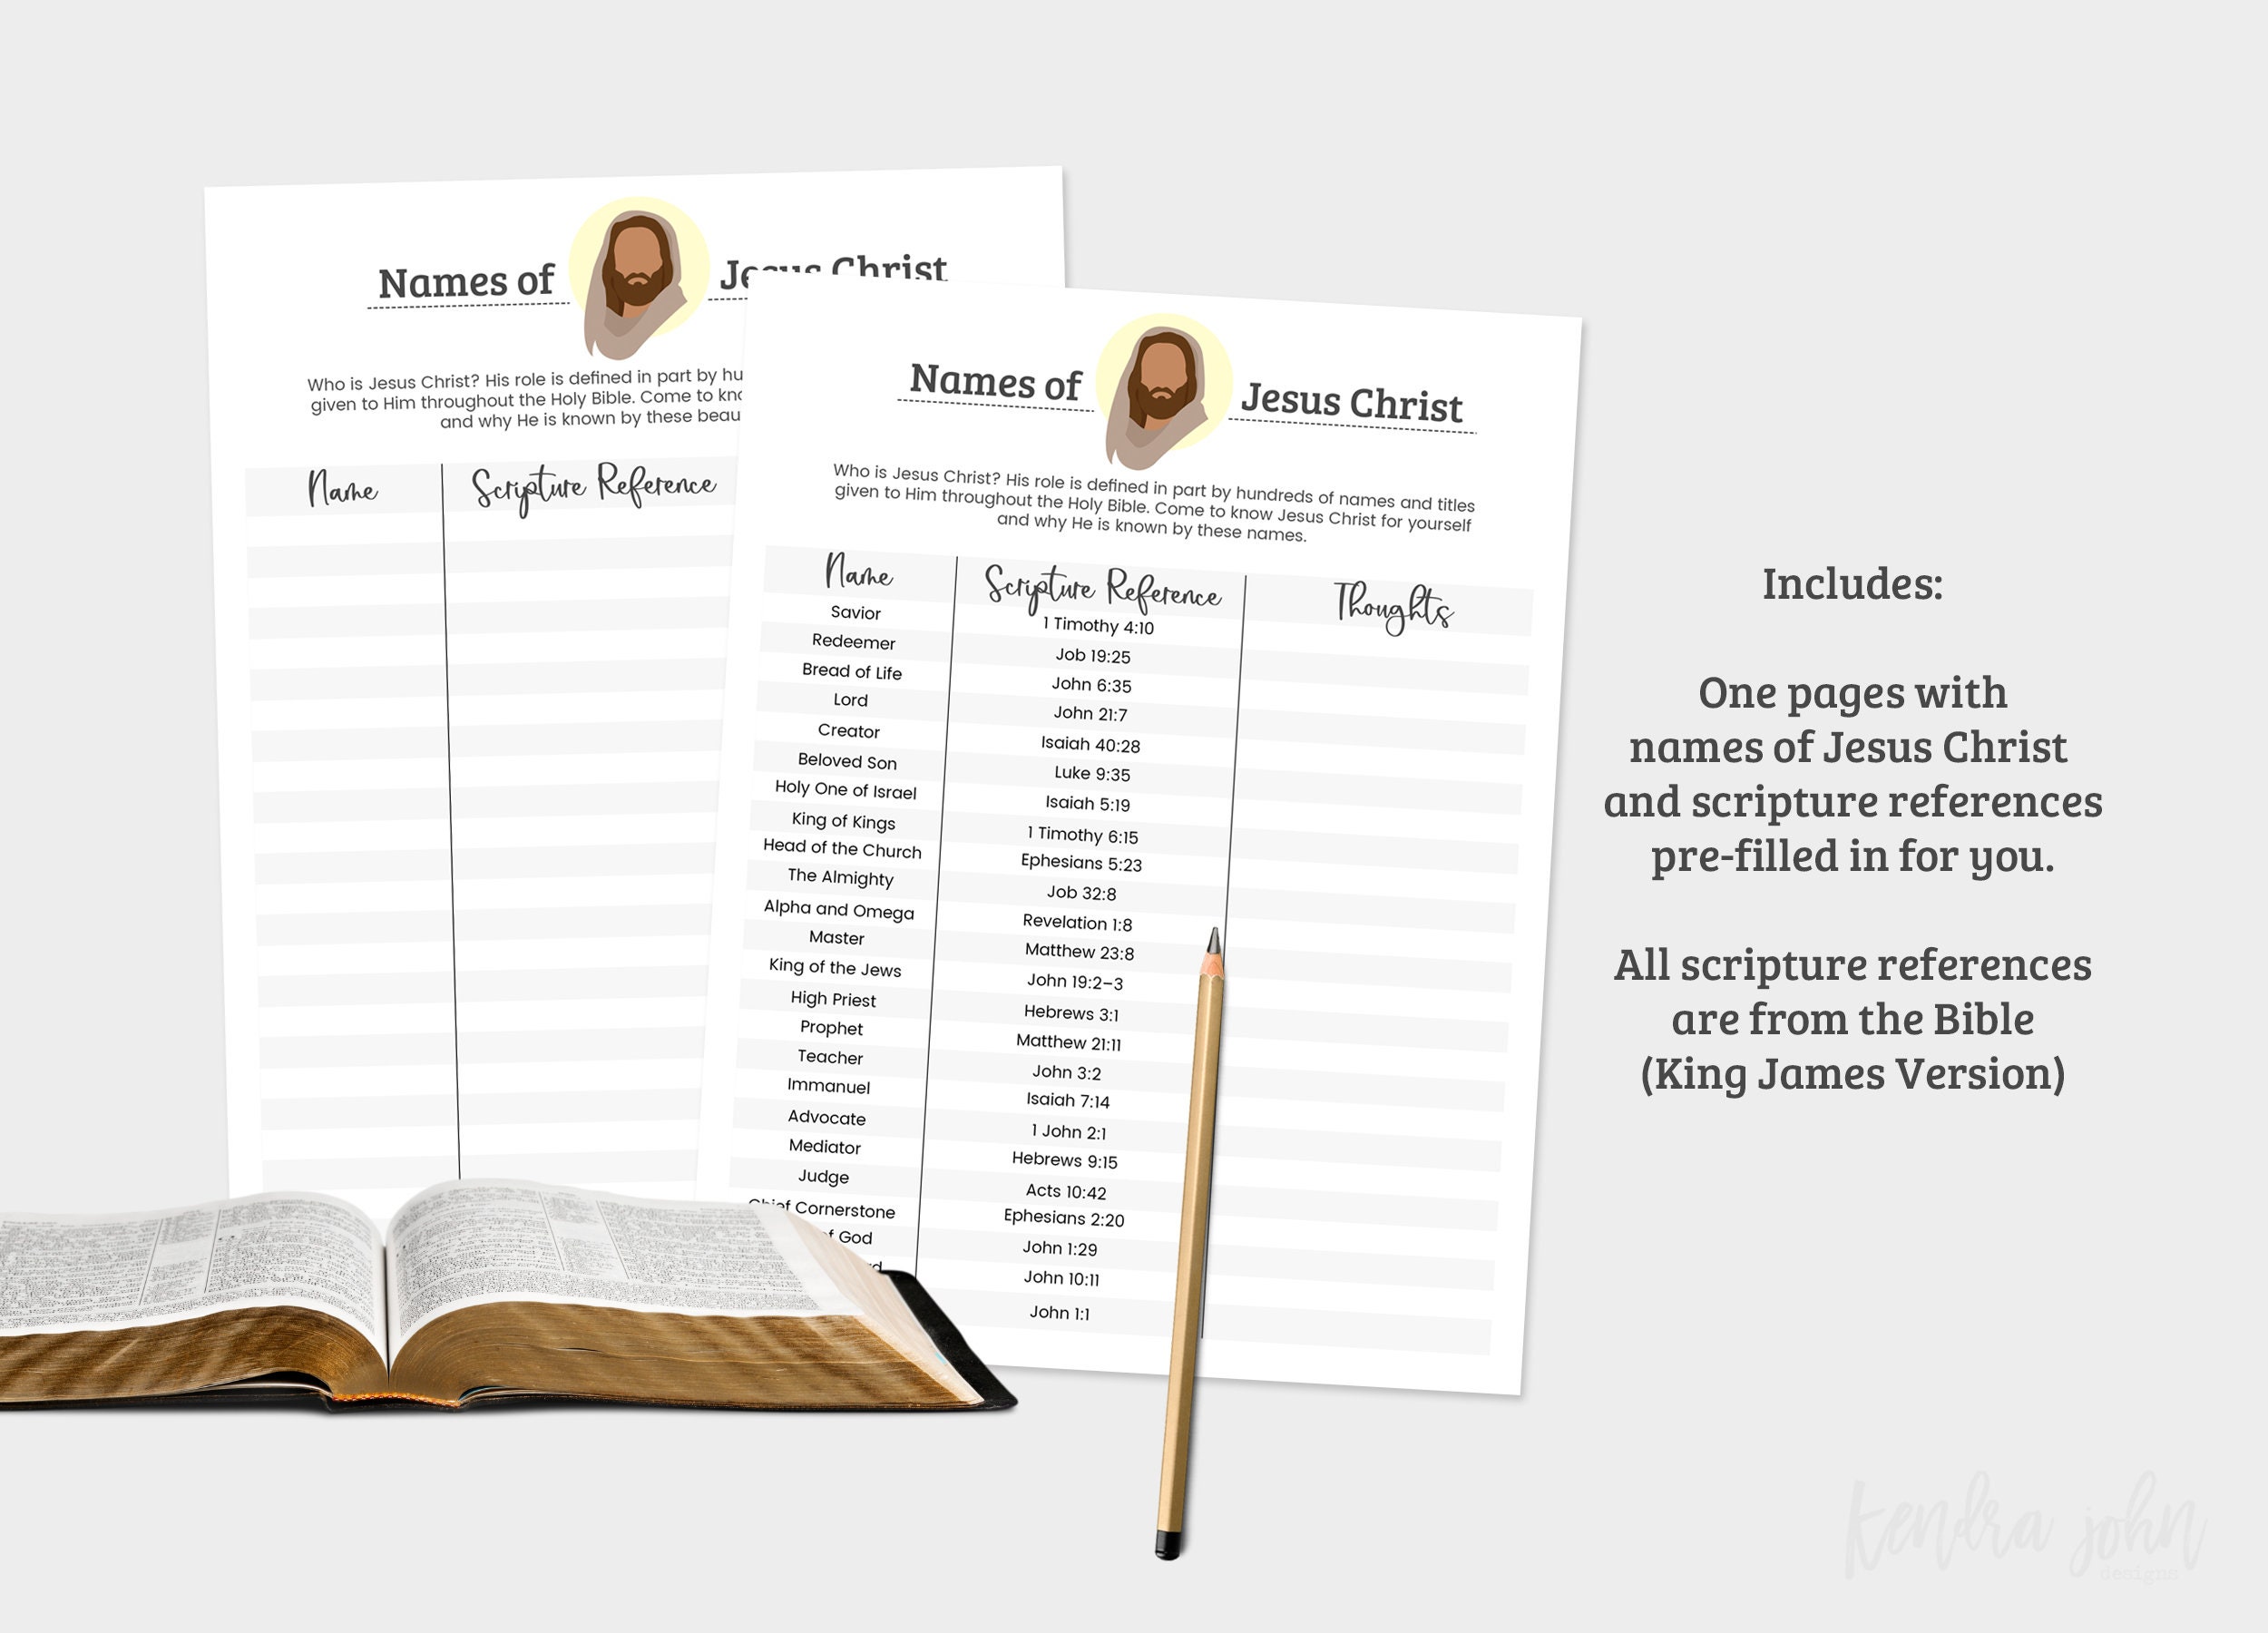 Names of Jesus Christ
Who is Jesus Christ? His role is defined in part by hu
given to Him throughout the Holy Bible. Come to kno
and why He is known by these beau
Name Scripture Reference
Names of Jesus Christ
Who is Jesus Christ? His role is defined in part by hundreds of names and titles
given to Him throughout the Holy Bible. Come to know Jesus Christ for yourself
and why He is known by these names.
Name Scripture Reference Thoughts
Savior 1 Timothy 4:10
Redeemer Job 19:25
Bread of Life John 6:35
Lord John 21:7
Creator Isaiah 40:28
Beloved Son Luke 9:35
Holy One of Israel Isaiah 5:19
King of Kings 1 Timothy 6:15
Head of the Church Ephesians 5:23
The Almighty Job 32:8
Alpha and Omega Revelation 1:8
Master Matthew 23:8
King of the Jews John 19:2–3
High Priest Hebrews 3:1
Prophet Matthew 21:11
Teacher John 3:2
Immanuel Isaiah 7:14
Advocate 1 John 2:1
Mediator Hebrews 9:15
Judge Acts 10:42
Chief Cornerstone Ephesians 2:20
of God John 1:29
John 10:11
John 1:1
Includes:
One pages with
names of Jesus Christ
and scripture references
pre-filled in for you.
All scripture references
are from the Bible
(King James Version)
kendra john
designs